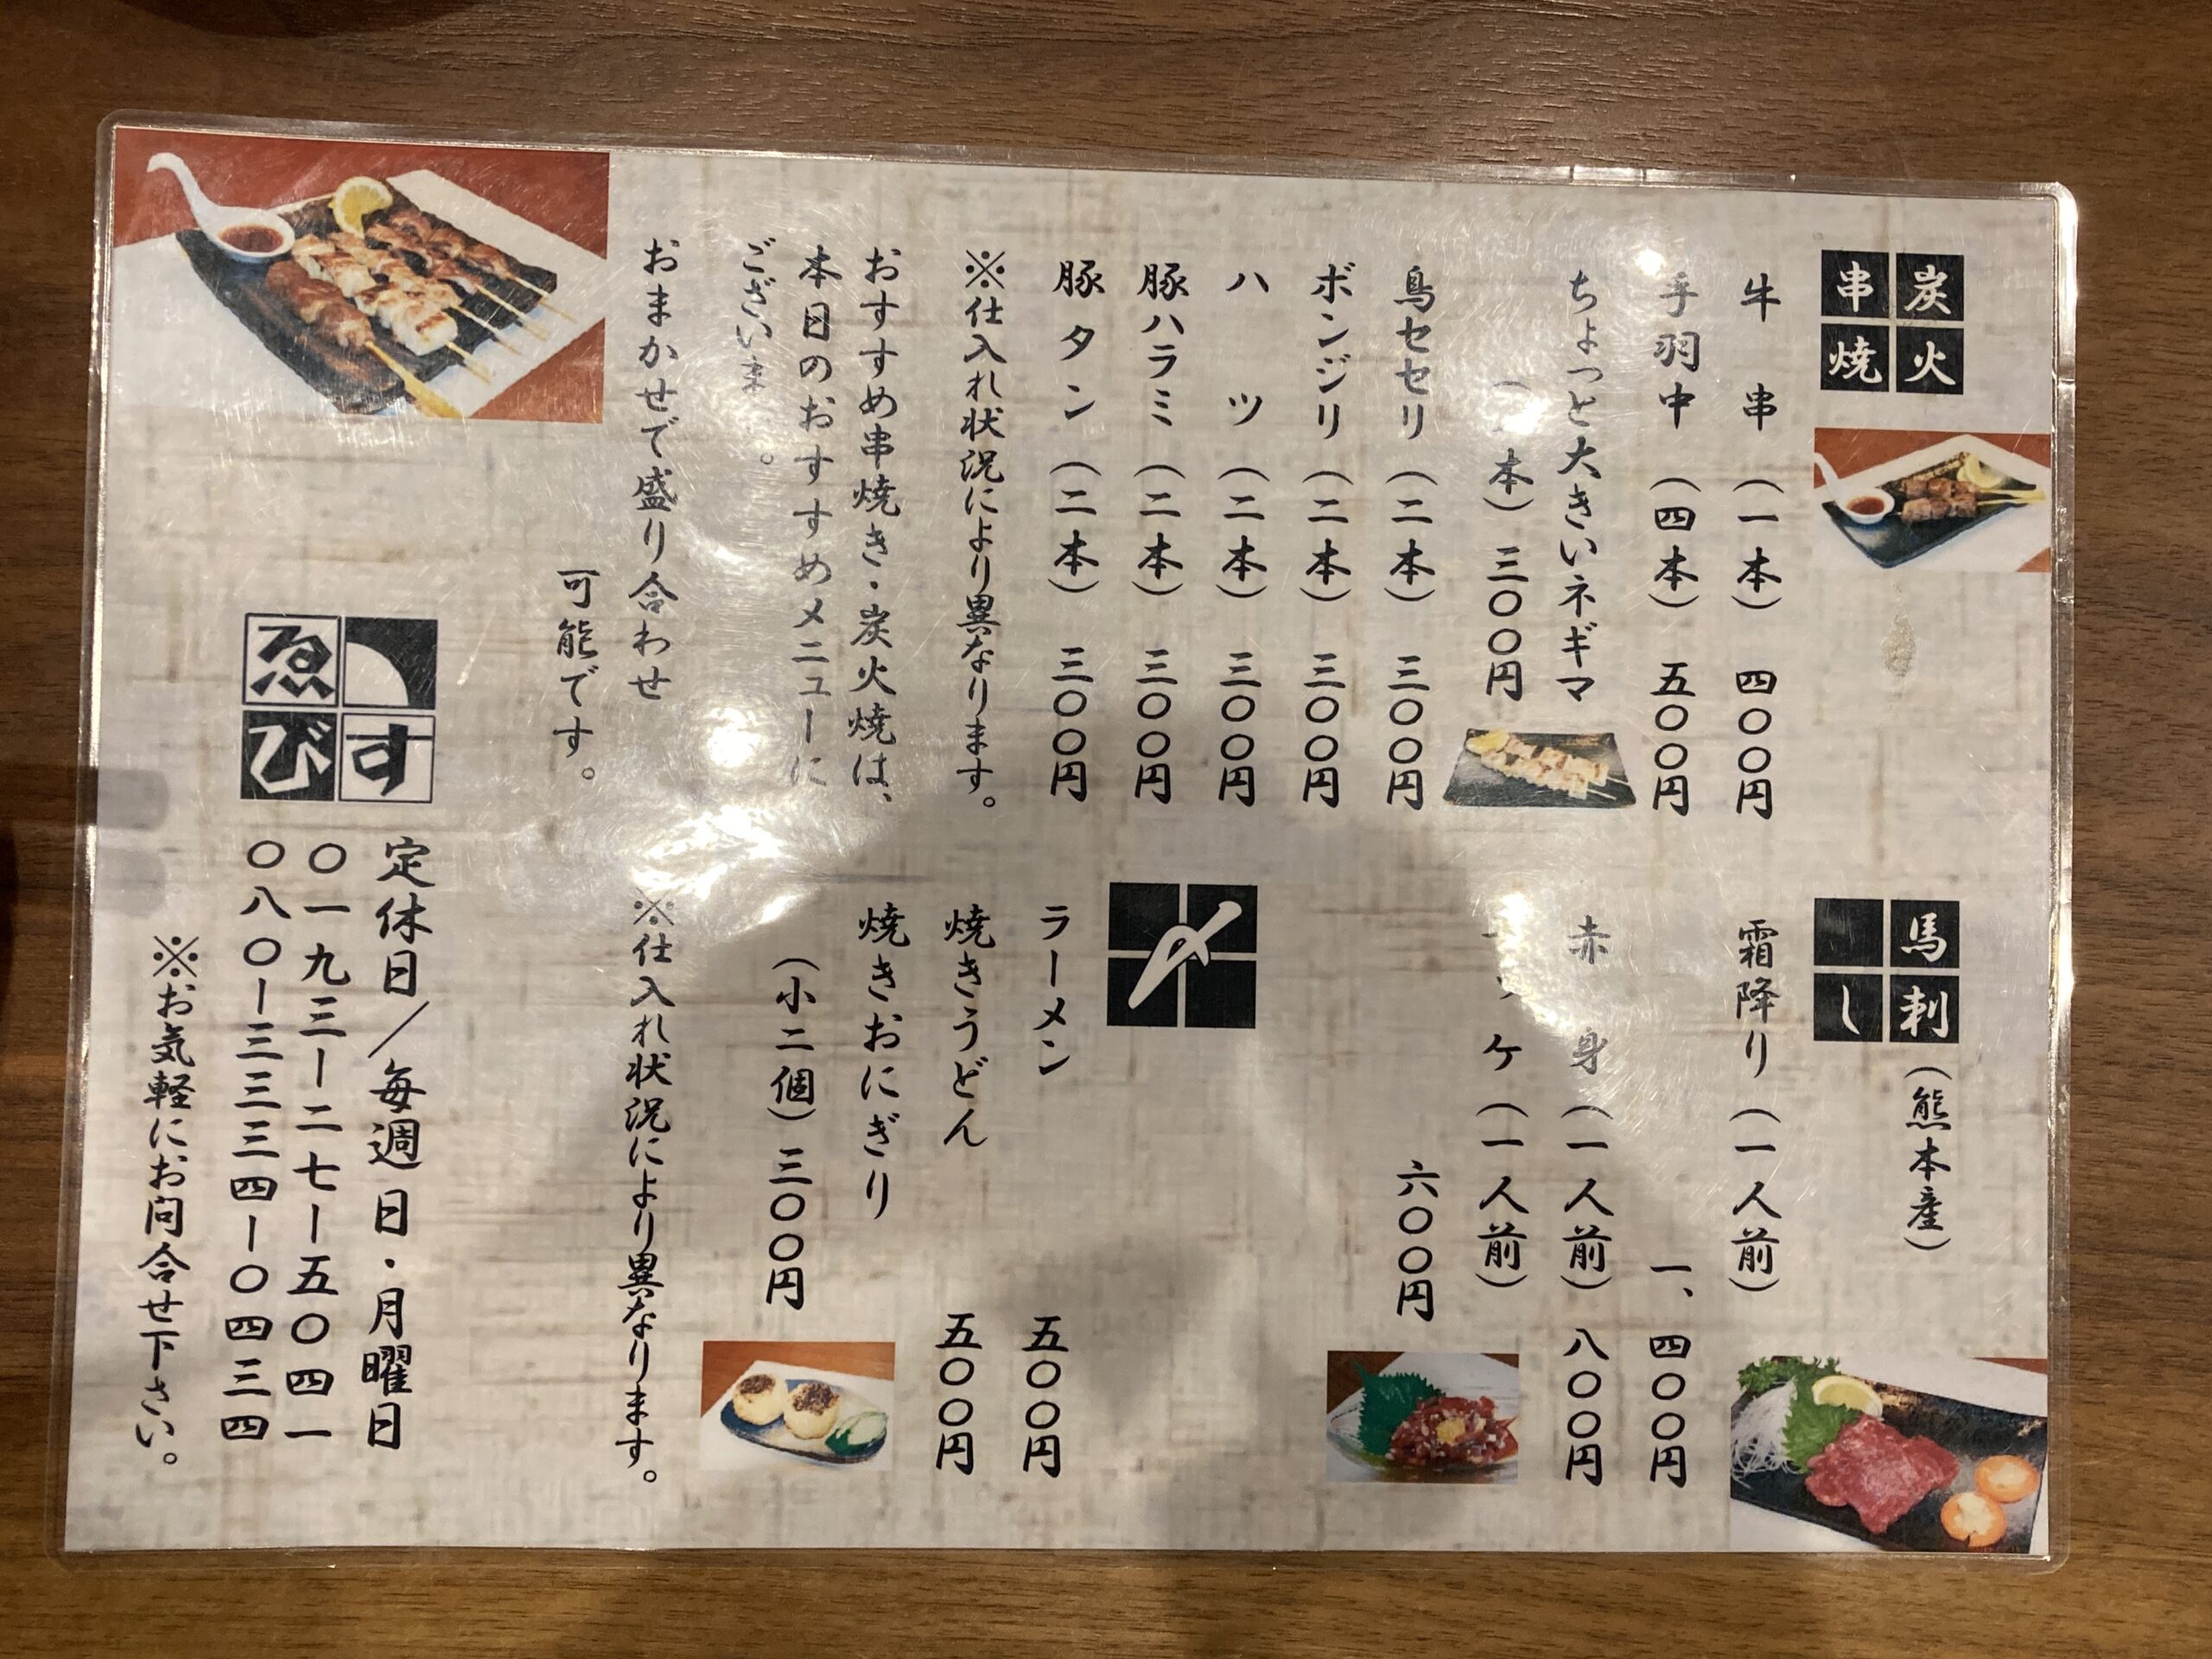 炭火串焼
牛串（一本） 四〇〇円
手羽中（四本） 五〇〇円
ちょっと大きいネギマ
本） 三〇〇円
鳥セセリ（二本） 三〇〇円
ボンジリ（二本） 三〇〇円
ハツ（二本） 三〇〇円
豚ハラミ（二本） 三〇〇円
豚タン（二本） 三〇〇円
※仕入れ状況により異なります。
おすすめ串焼き・炭火焼は、
本日のおすすめメニューに
ございま。
おまかせで盛り合わせ
可能です。
馬刺し（熊本産）
霜降り（一人前）
一、四〇〇円
赤身（一人前） 八〇〇円
ケ（一人前）
六〇〇円
〆
ラーメン 五〇〇円
焼きうどん 五〇〇円
焼きおにぎり
（小二個） 三〇〇円
※仕入れ状況により異なります。
ゑびす
定休日／毎週日・月曜日
〇一九三ー二七ー五〇四一
〇八〇ー三三三四ー〇四三四
※お気軽にお問合せ下さい。